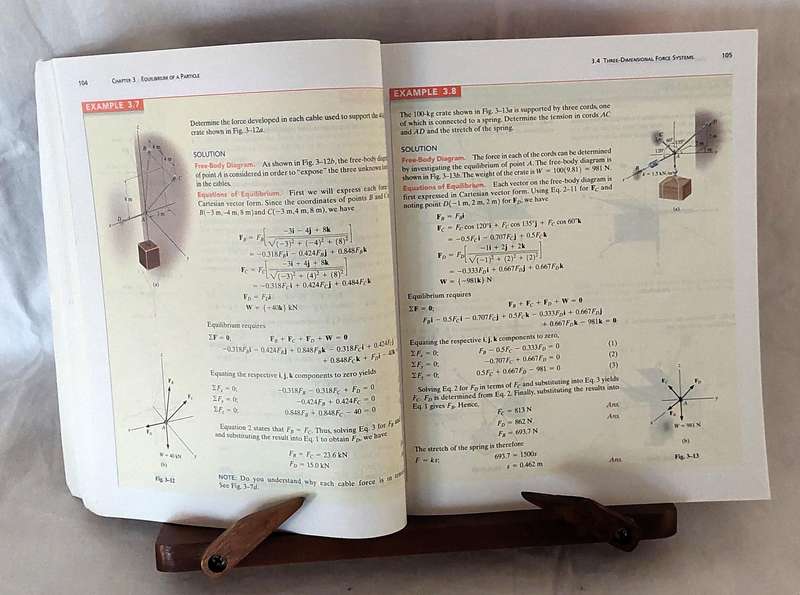 104 CHAPTER 3 EQUILIBRIUM OF A PARTICLE
EXAMPLE 3.7
Determine the force developed in each cable used to support the
crate shown in Fig. 3–12a.
SOLUTION
Free-Body Diagram. As shown in Fig. 3–12b, the free-body
of point A is considered in order to "expose" the three unknown
in the cables.
Equations of Equilibrium. First we will express each
Cartesian vector form. Since the coordinates of points B and
B(−3 m, −4 m, 8 m) and C(−3 m, 4 m, 8 m), we have
F_B = F_B[−3i − 4j + 8k / √(−3)² + (−4)² + (8)²]
= −0.318F_Bi − 0.424F_Bj + 0.848F_Bk
F_C = F_C[−3i + 4j + 8k / √(−3)² + (4)² + (8)²]
= −0.318F_Ci + 0.424F_Cj + 0.848F_Ck
F_D = F_Di
W = {−40k} kN
Equilibrium requires
ΣF = 0; F_B + F_C + F_D + W = 0
−0.318F_Bi − 0.424F_Bj + 0.848F_Bk − 0.318F_Ci + 0.424F_Cj
+ 0.848F_Ck + F_Di − 40k
Equating the respective i, j, k components to zero yields
ΣF_x = 0; −0.318F_B − 0.318F_C + F_D = 0
ΣF_y = 0; −0.424F_B + 0.424F_C = 0
ΣF_z = 0; 0.848F_B + 0.848F_C − 40 = 0
Equation 2 states that F_B = F_C. Thus, solving Eq. 3 for F_B
and substituting the result into Eq. 1 to obtain F_D, we have
F_B = F_C = 23.6 kN
F_D = 15.0 kN
NOTE: Do you understand why each cable force is
See Fig. 3–7d.
(a)
W = 40 kN
(b)
Fig. 3–12
3.4 THREE-DIMENSIONAL FORCE SYSTEMS 105
EXAMPLE 3.8
The 100-kg crate shown in Fig. 3–13a is supported by three cords, one
of which is connected to a spring. Determine the tension in cords AC
and AD and the stretch of the spring.
SOLUTION
Free-Body Diagram. The force in each of the cords can be determined
by investigating the equilibrium of point A. The free-body diagram is
shown in Fig. 3–13b. The weight of the crate is W = 100(9.81) = 981 N.
Equations of Equilibrium. Each vector on the free-body diagram is
first expressed in Cartesian vector form. Using Eq. 2–11 for F_C and
noting point D(−1 m, 2 m, 2 m) for F_D, we have
F_B = F_Bi
F_C = F_C cos 120°i + F_C cos 135°j + F_C cos 60°k
= −0.5F_Ci − 0.707F_Cj + 0.5F_Ck
F_D = F_D[−1i + 2j + 2k / √(−1)² + (2)² + (2)²]
= −0.333F_Di + 0.667F_Dj + 0.667F_Dk
W = {−981k} N
Equilibrium requires
ΣF = 0; F_B + F_C + F_D + W = 0
F_Bi − 0.5F_Ci − 0.707F_Cj + 0.5F_Ck − 0.333F_Di + 0.667F_Dj
+ 0.667F_Dk − 981k = 0
Equating the respective i, j, k components to zero,
ΣF_x = 0; F_B − 0.5F_C − 0.333F_D = 0 (1)
ΣF_y = 0; −0.707F_C + 0.667F_D = 0 (2)
ΣF_z = 0; 0.5F_C + 0.667F_D − 981 = 0 (3)
Solving Eq. 2 for F_D in terms of F_C and substituting into Eq. 3 yields
F_C. F_D is determined from Eq. 2. Finally, substituting the results into
Eq. 1 gives F_B. Hence,
F_C = 813 N Ans.
F_D = 862 N Ans.
F_B = 693.7 N
The stretch of the spring is therefore
F = ks; 693.7 = 1500s
s = 0.462 m Ans.
(a)
W = 981 N
(b)
Fig. 3–13